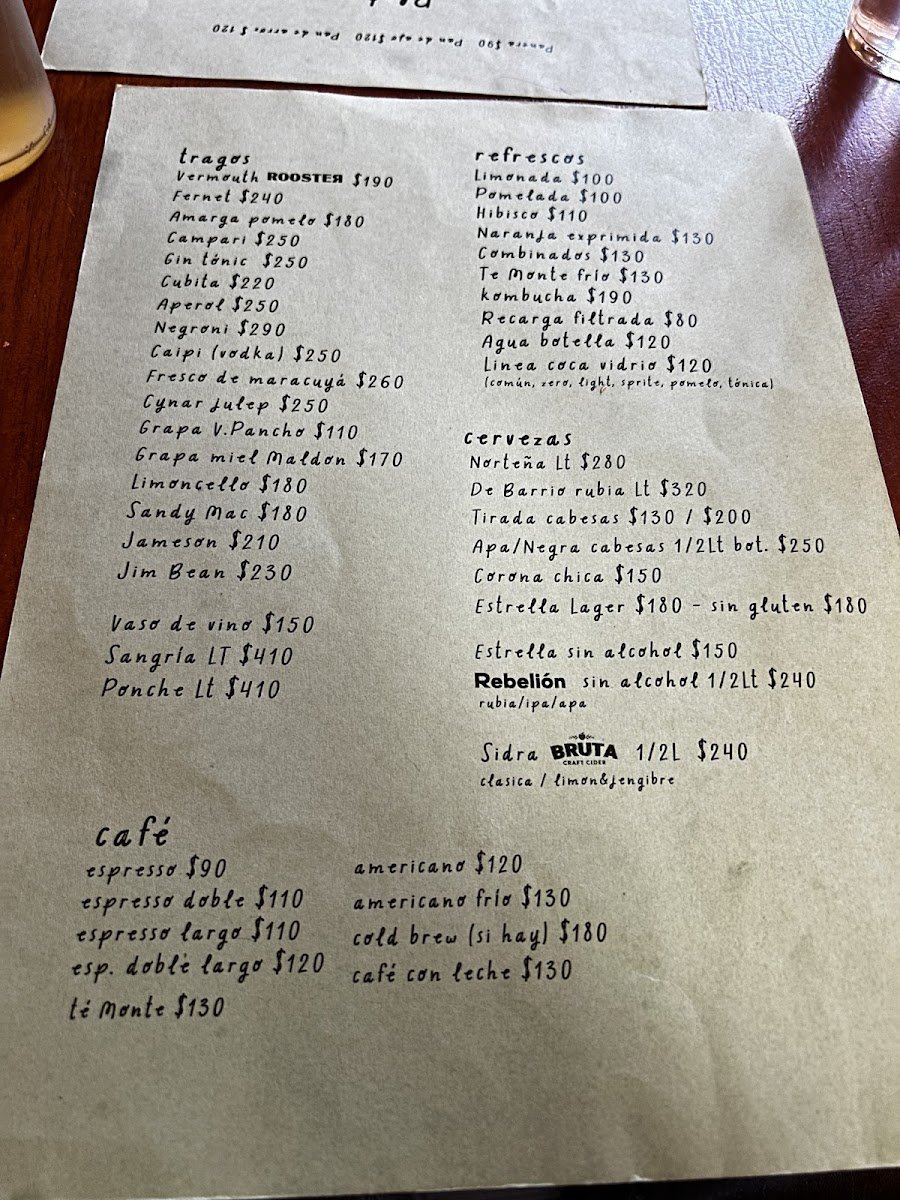 Panera $90 Pan de ajo $120 Pan de arroz $ 120
tragos
Vermouth ROOSTER $190
Fernet $240
Amarga pomelo $180
Campari $250
Gin tónic $250
Cubita $220
Aperol $250
Negroni $290
Caipi (vodka) $250
Fresco de maracuyá $260
Cynar julep $250
Grapa V.Pancho $110
Grapa miel Maldon $170
Limoncello $180
Sandy Mac $180
Jameson $210
Jim Bean $230
Vaso de vino $150
Sangría LT $410
Ponche Lt $410
refrescos
Limonada $100
Pomelada $100
Hibisco $110
Naranja exprimida $130
Combinados $130
Te Monte frío $130
kombucha $190
Recarga filtrada $80
Agua botella $120
Linea coca vidrio $120
(común, zero, light, sprite, pomelo, tónica)
cervezas
Norteña Lt $280
De Barrio rubia Lt $320
Tirada cabesas $130 / $200
Apa/Negra cabesas 1/2Lt bot. $250
Corona chica $150
Estrella Lager $180 - sin gluten $180
Estrella sin alcohol $150
Rebelión sin alcohol 1/2Lt $240
rubia/ipa/apa
Sidra BRUTA 1/2L $240
CRAFT CIDER
clasica / limon&jengibre
café
espresso $90
espresso doble $110
espresso largo $110
esp. doble largo $120
té Monte $130
americano $120
americano frío $130
cold brew (si hay) $180
café con leche $130